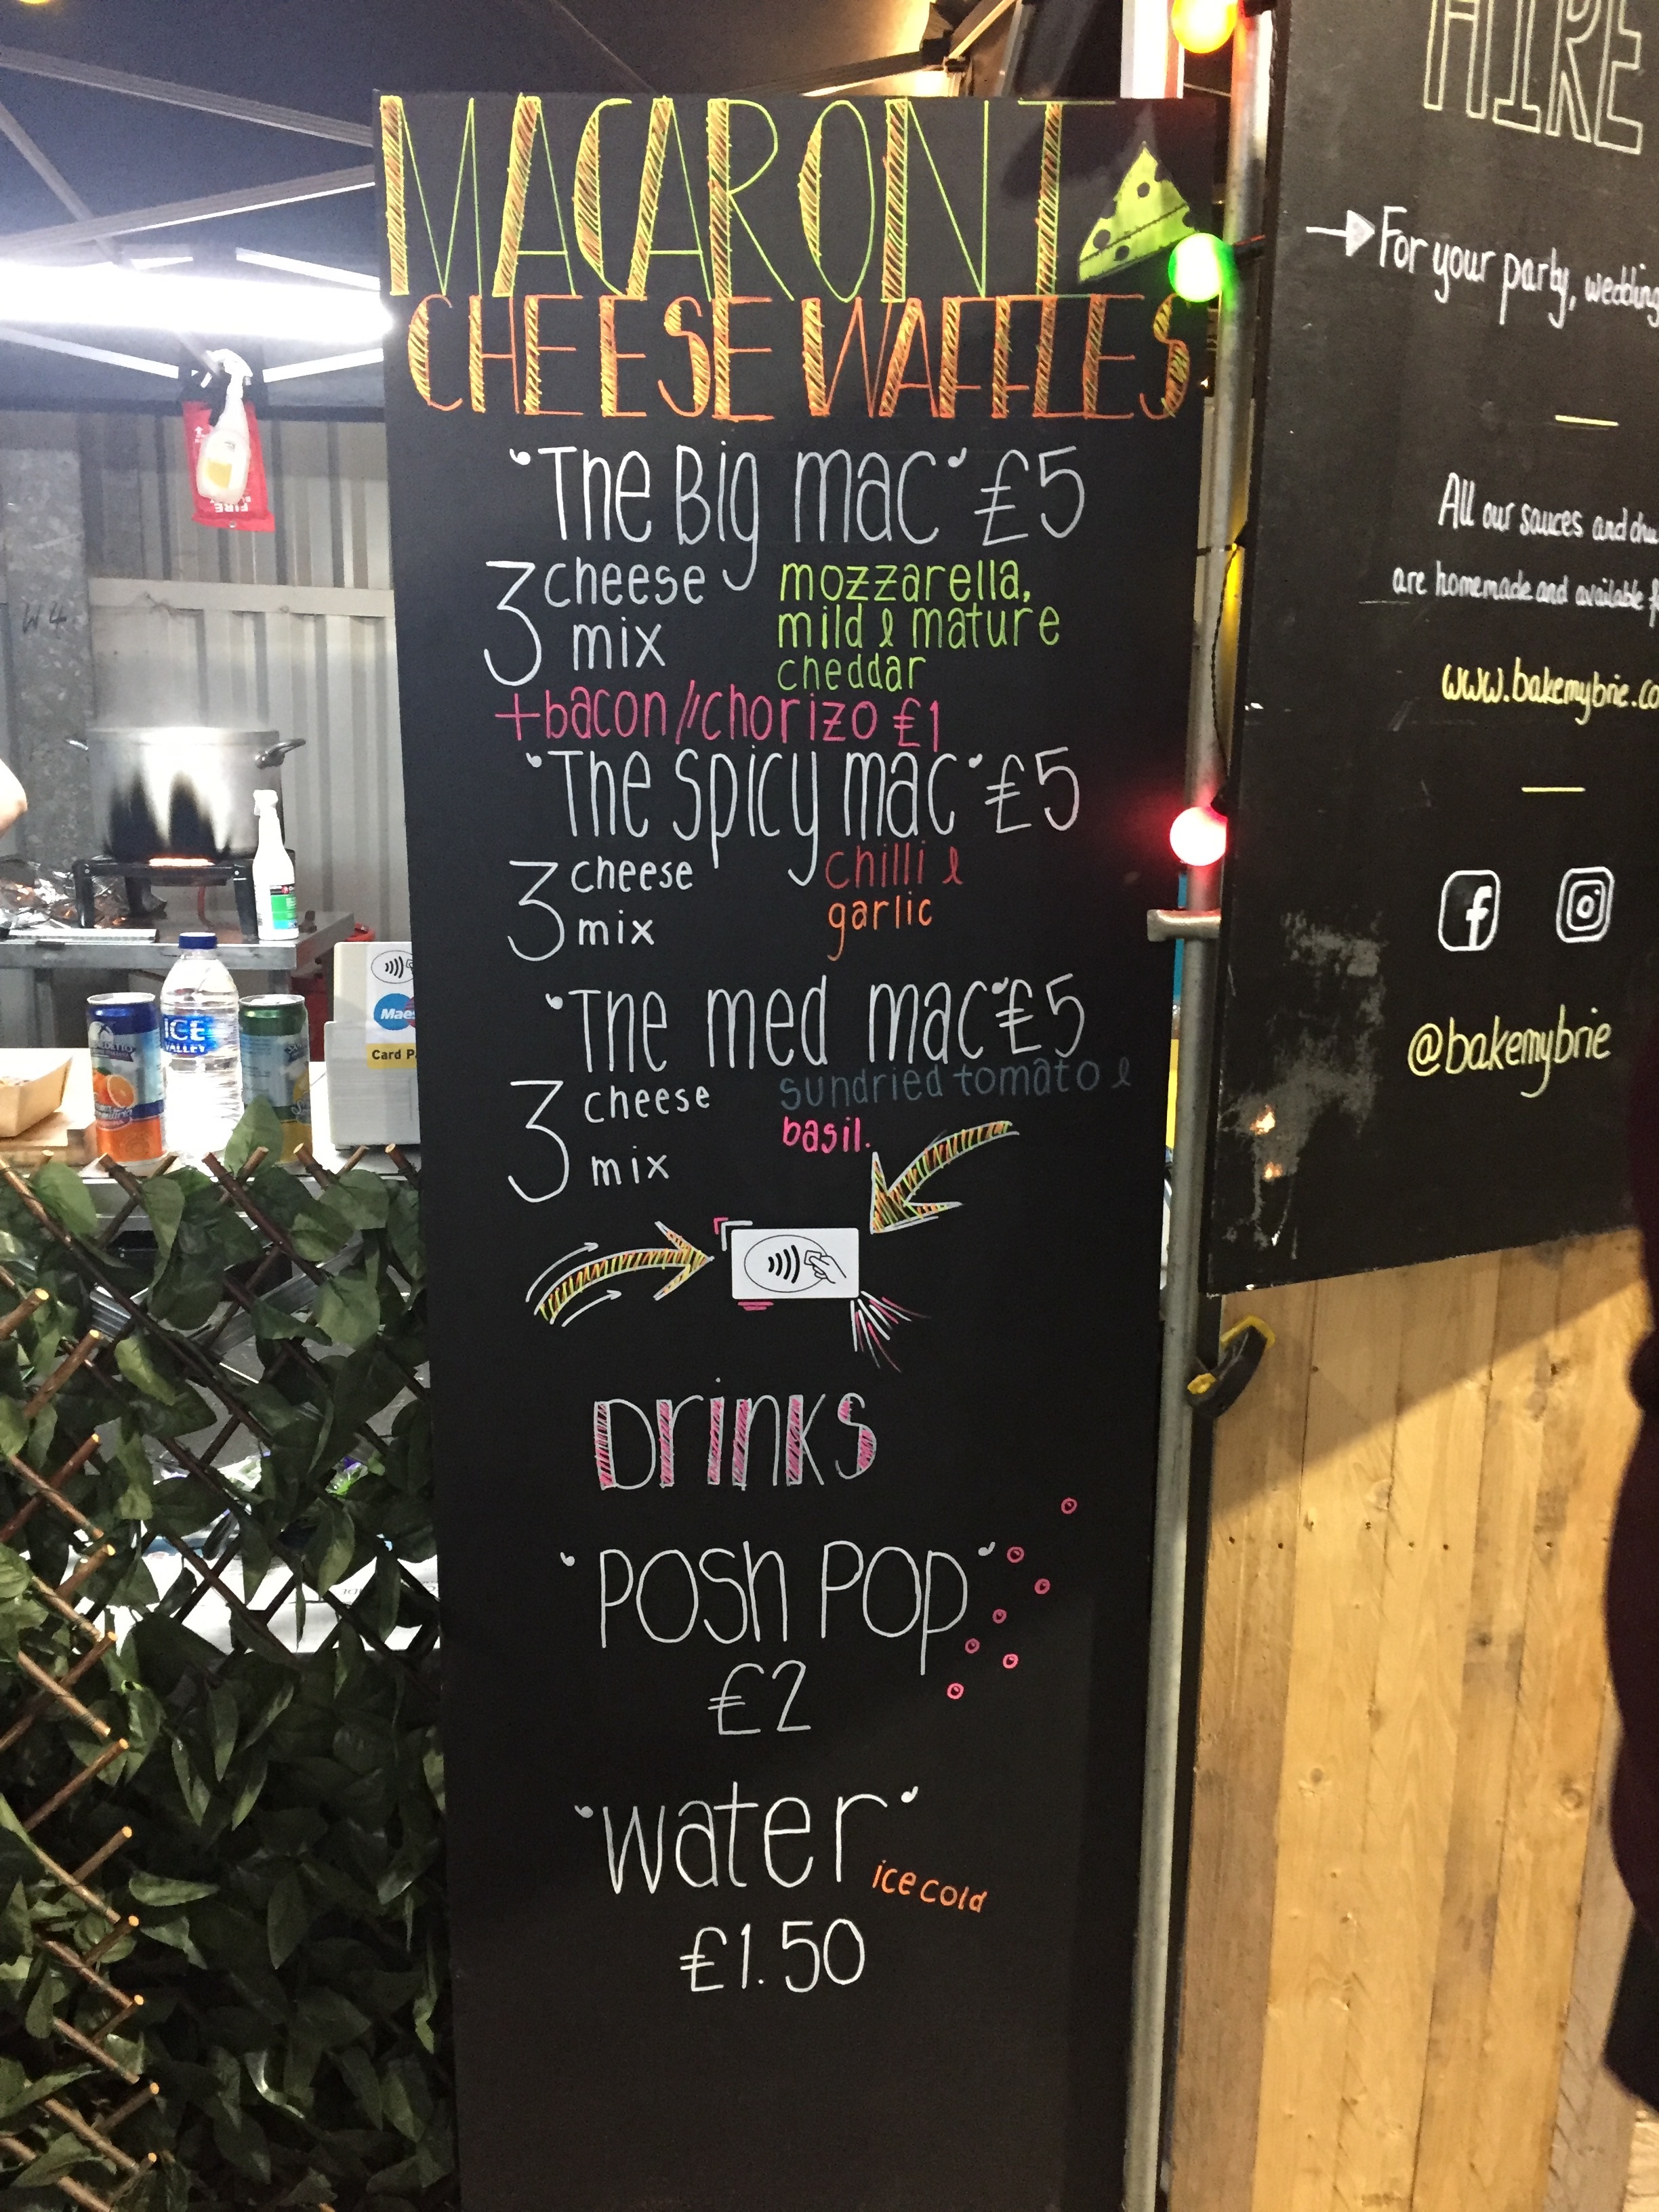 MACARONI
CHEESE WAFFLES
'The Big mac' £5
3 cheese mix
mozzarella,
mild & mature
cheddar
+bacon//chorizo £1
'The Spicy mac' £5
3 cheese mix
chilli &
garlic
'The med mac' £5
3 cheese mix
sundried tomato &
basil.
Drinks
'POSH POP'
£2
'water' ice cold
£1.50
HIRE
For your party, wedding
All our sauces and
are homemade and available
www.bakemybrie.co
@bakemybrie
FIRE
W4
ICE
VALLEY
Maes
Card P